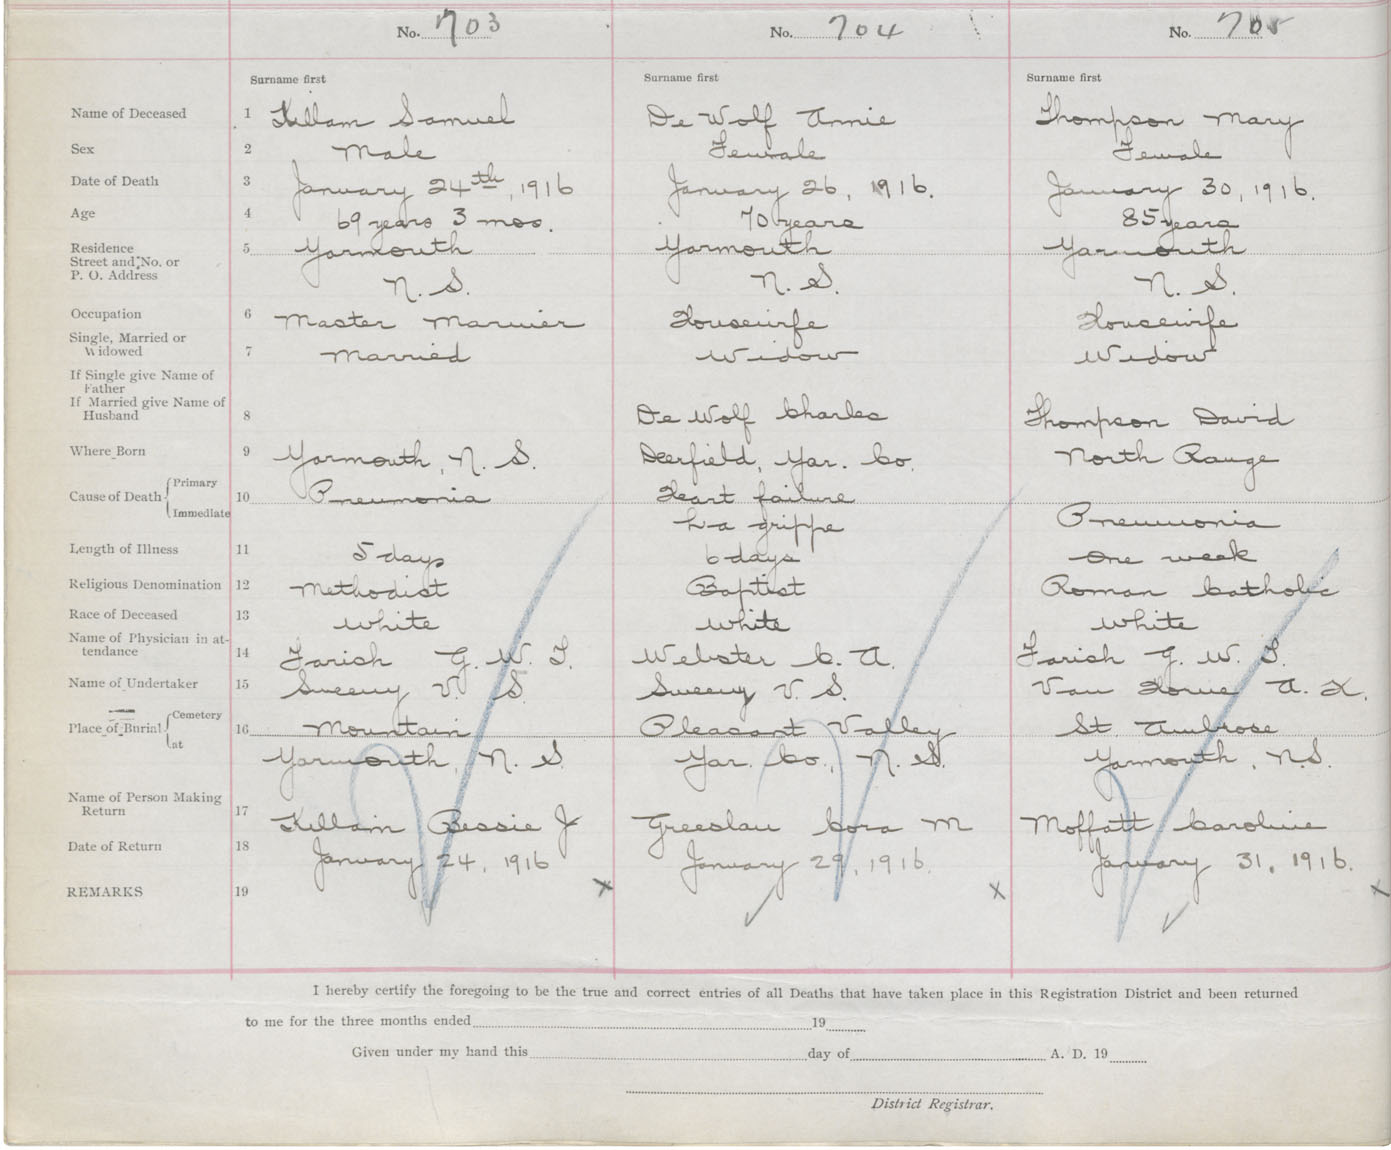 No. 703 No. 704 No. 705
Surname first Surname first Surname first
Name of Deceased 1 Killam Samuel De Wolf Annie Thompson Mary
Sex 2 Male Female Female
Date of Death 3 January 24th, 1916 January 26, 1916. January 30, 1916.
Age 4 69 years 3 mos. 70 years 85 years
Residence 5 Yarmouth Yarmouth Yarmouth
Street and No. or
P. O. Address N. S. N. S. N. S.
Occupation 6 Master Mariner Housewife Housewife
Single, Married or
Widowed 7 Married Widow Widow
If Single give Name of
Father
If Married give Name of
Husband 8 De Wolf Charles Thompson David
Where Born 9 Yarmouth, N. S. Deerfield, Yar. Co. North Range
Cause of Death { Primary 10 Pneumonia Heart failure
Immediate La grippe Pneumonia
Length of Illness 11 5 days 6 days One week
Religious Denomination 12 Methodist Baptist Roman Catholic
Race of Deceased 13 White White White
Name of Physician in at-
tendance 14 Farish G. W. T. Webster C. A. Farish G. W. T.
Name of Undertaker 15 Sweeny V. S. Sweeny V. S. Van Horne A. K.
Place of Burial { Cemetery 16 Mountain Pleasant Valley St Ambrose
at Yarmouth, N. S. Yar. Co., N. S. Yarmouth, N.S.
Name of Person Making
Return 17 Killam Bessie J Cora M Moffatt Caroline
Date of Return 18 January 24, 1916 January 29, 1916. January 31, 1916.
REMARKS 19 x x x
I hereby certify the foregoing to be the true and correct entries of all Deaths that have taken place in this Registration District and been returned
to me for the three months ended 19
Given under my hand this day of A. D. 19
District Registrar.